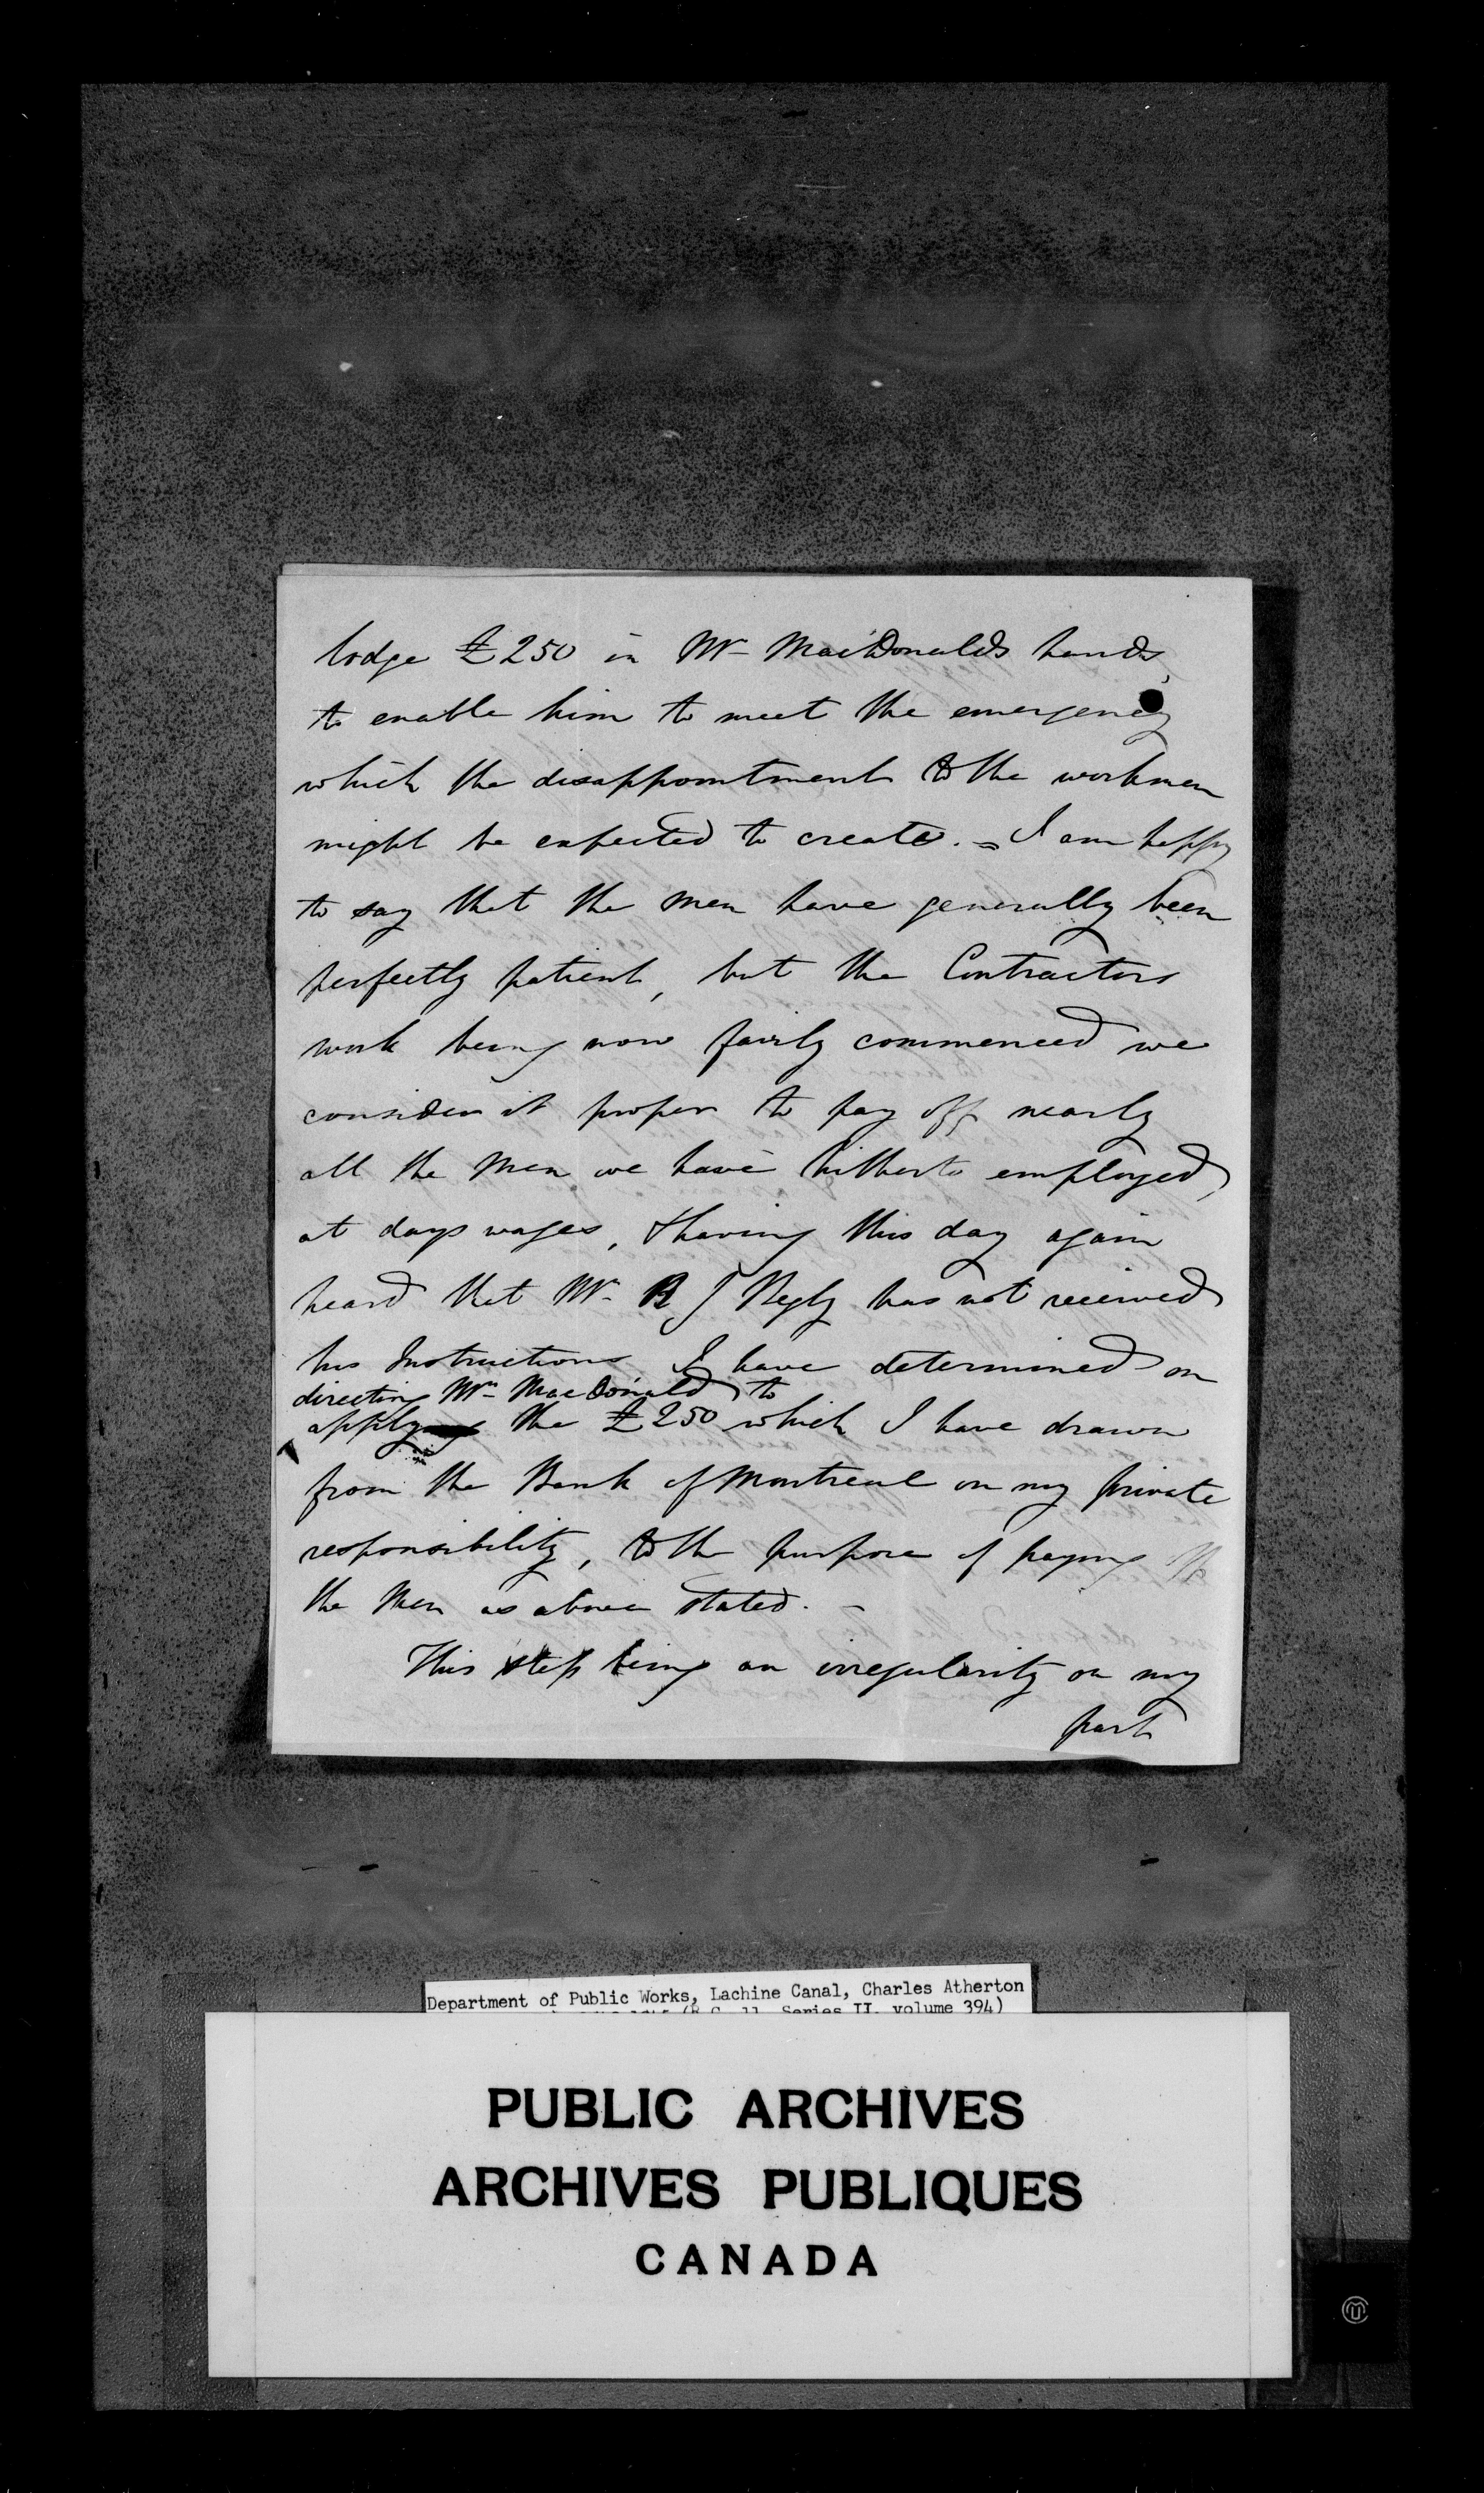 lodge £250 in Mr MacDonalds hands,
to enable him to meet the emergency
which the disappointment to the workmen
might be expected to create. = I am happy
to say that the Men have generally been
perfectly patient, but the Contractors
work being now fairly commenced we
consider it proper to pay off nearly
all the Men we have hitherto employed,
at days wages, & having this day again
heard that Mr R J Begly has not received
his Instructions I have determined on
directing Mr MacDonald to
apply the £250 which I have drawn
from the Bank of Montreal on my private
responsibility, to the purpose of paying off
the Men as above stated. -
This step being an irregularity on my
part
Department of Public Works, Lachine Canal, Charles Atherton
Series II, volume 394)
PUBLIC ARCHIVES
ARCHIVES PUBLIQUES
CANADA